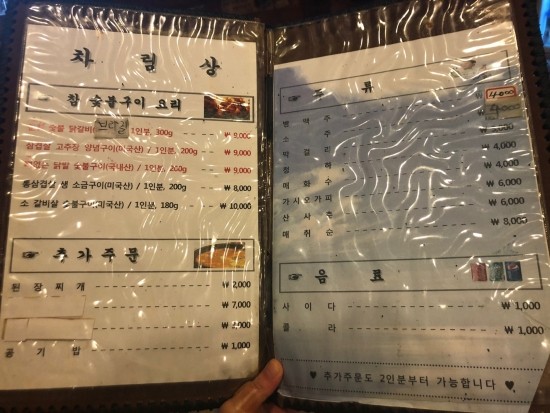 차 림 상
☞ 참 숯불구이 요리
숯불 닭갈비(브라질) 1인분, 300g ₩ 9,000
고추장 양념구이(미국산) / 1인분, 200g ₩ 9,000
닭발 숯불구이(국내산) / 1인분, 200g ₩ 9,000
통삼겹살 생 소금구이(미국산) / 1인분, 200g ₩ 8,000
소 갈비살 숯불구이(미국산) / 1인분, 180g ₩ 10,000
☞ 추가주문
된 장 찌 개 ₩ 2,000
₩ 7,000
₩
공 기 밥 ₩ 1,000
주 류
4,000
맥 주
소 주
막 걸 리 4,000
₩ 4,000
매 화 수 ₩ 6,000
가 시 오 가 피 ₩ 6,000
산 사 춘 ₩ 8,000
매 취 순
☞ 음 료
사 이 다 ₩ 1,000
콜 라 ₩ 1,000
♥ 추가주문도 2인분부터 가능합니다 ♥